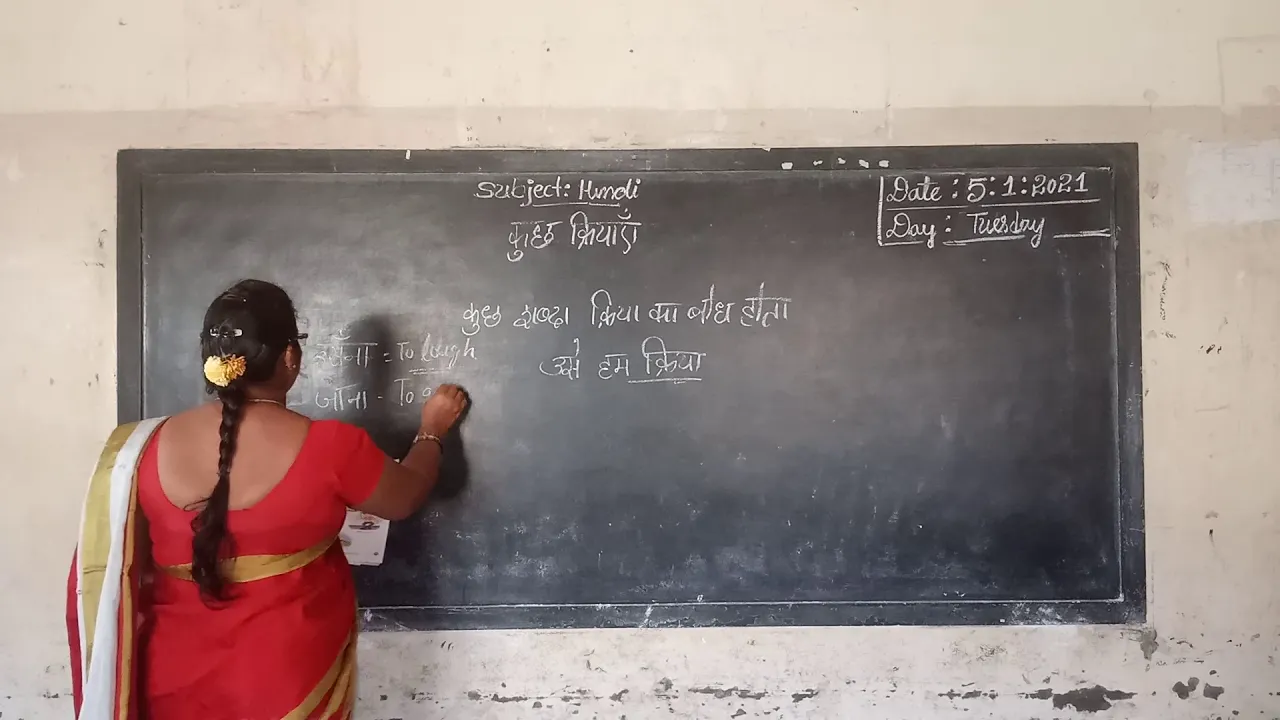 Subject: Hindi
Date : 5:1:2021
Day : Tuesday
कुछ क्रियाएँ
कुछ शब्दा क्रिया का बोध होता
उसे हम क्रिया
हसँना = To laugh
जाँना - To